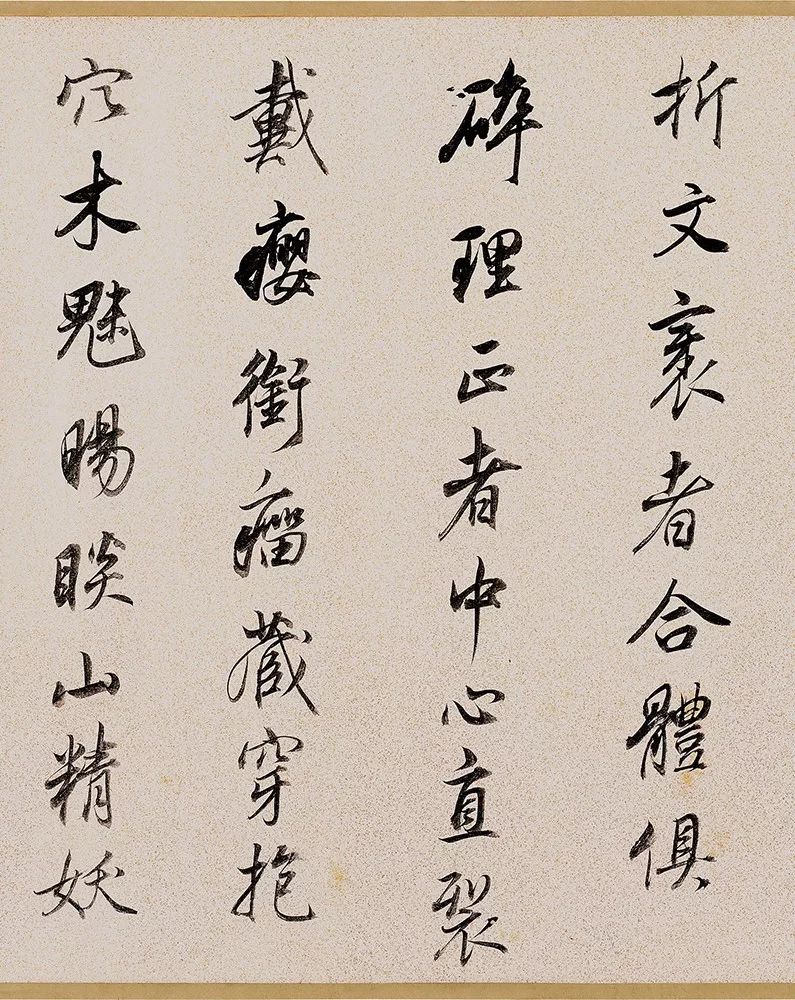 折文袤者合體俱
碎理正者中心直裂
戴癭銜瘤藏穿抱
穴木魅睗睒山精妖